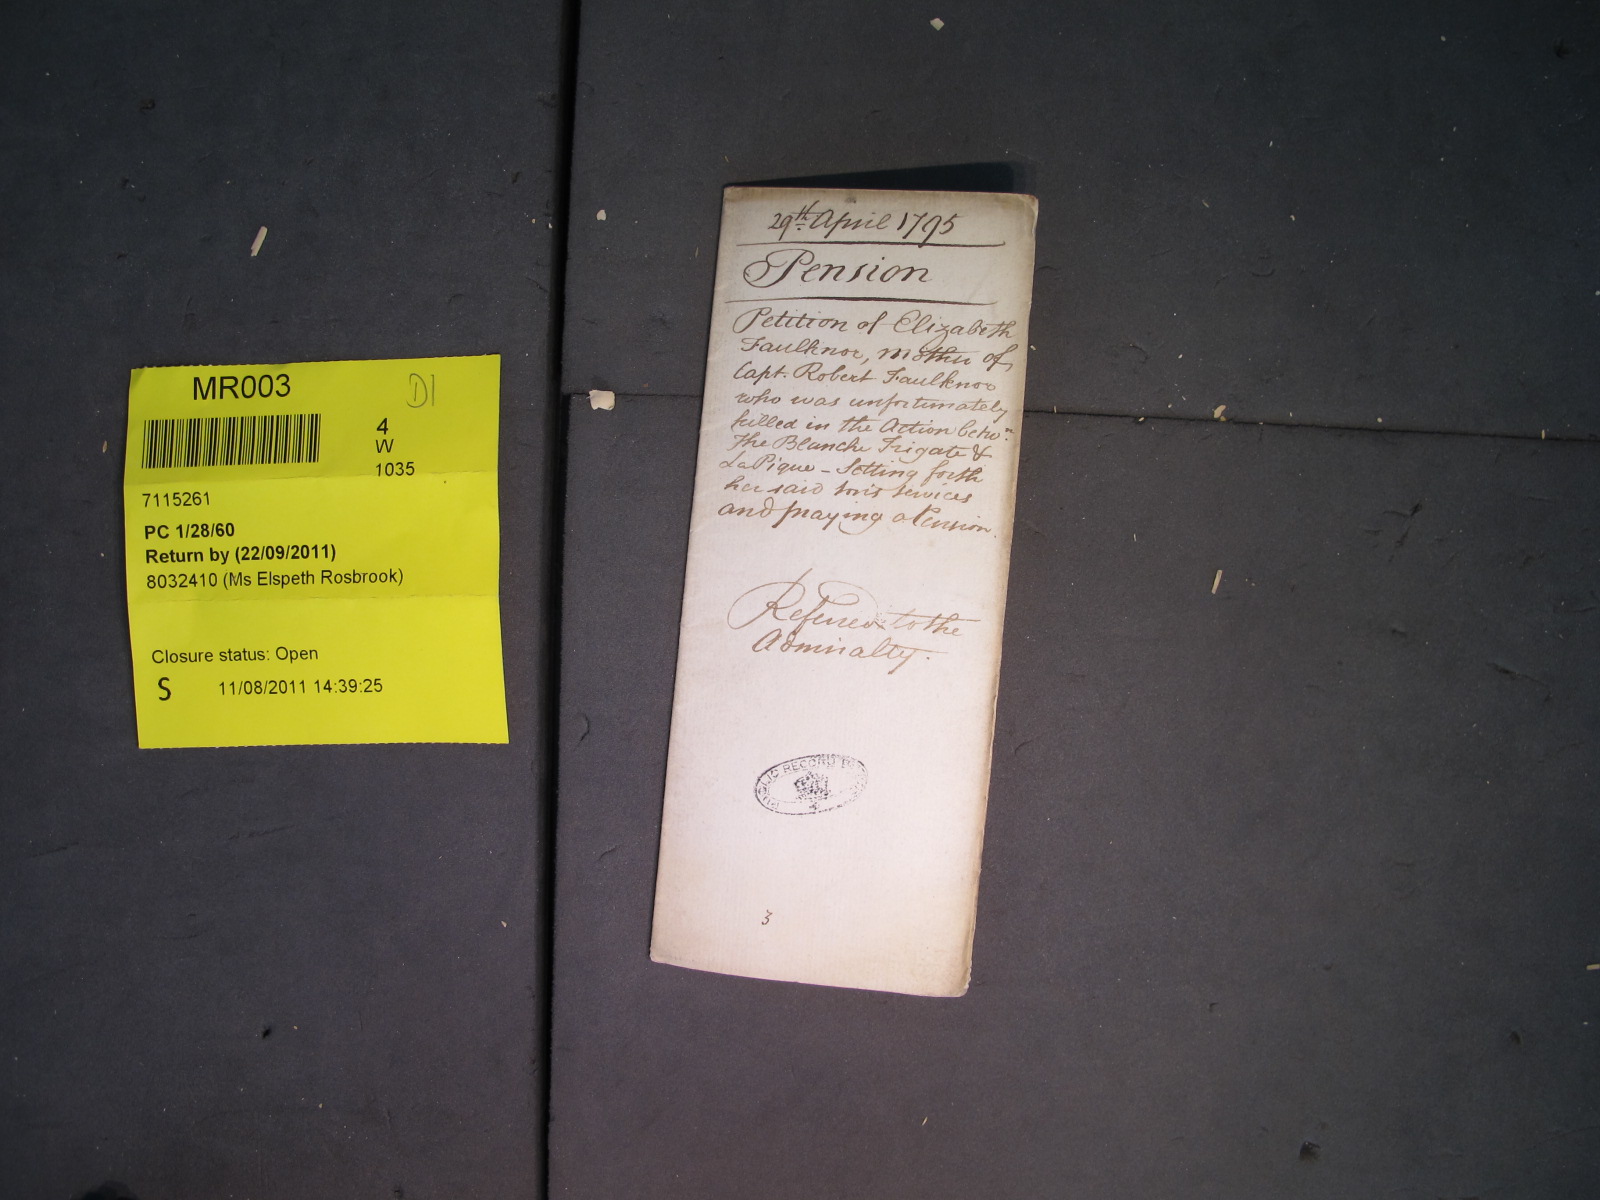 MR003
D1
4
W
1035
7115261
PC 1/28/60
Return by (22/09/2011)
8032410 (Ms Elspeth Rosbrook)
Closure status: Open
S 11/08/2011 14:39:25
29th April 1795
Pension
Petition of Elizabeth
Faulknor, mother of
Capt. Robert Faulknor
who was unfortunately
killed in the Action betwn.
The Blanche Frigate &
La Pique – Setting forth
her said son's services
and praying a Pension.
Referred to the
Admiralty.
PUBLIC RECORD
3